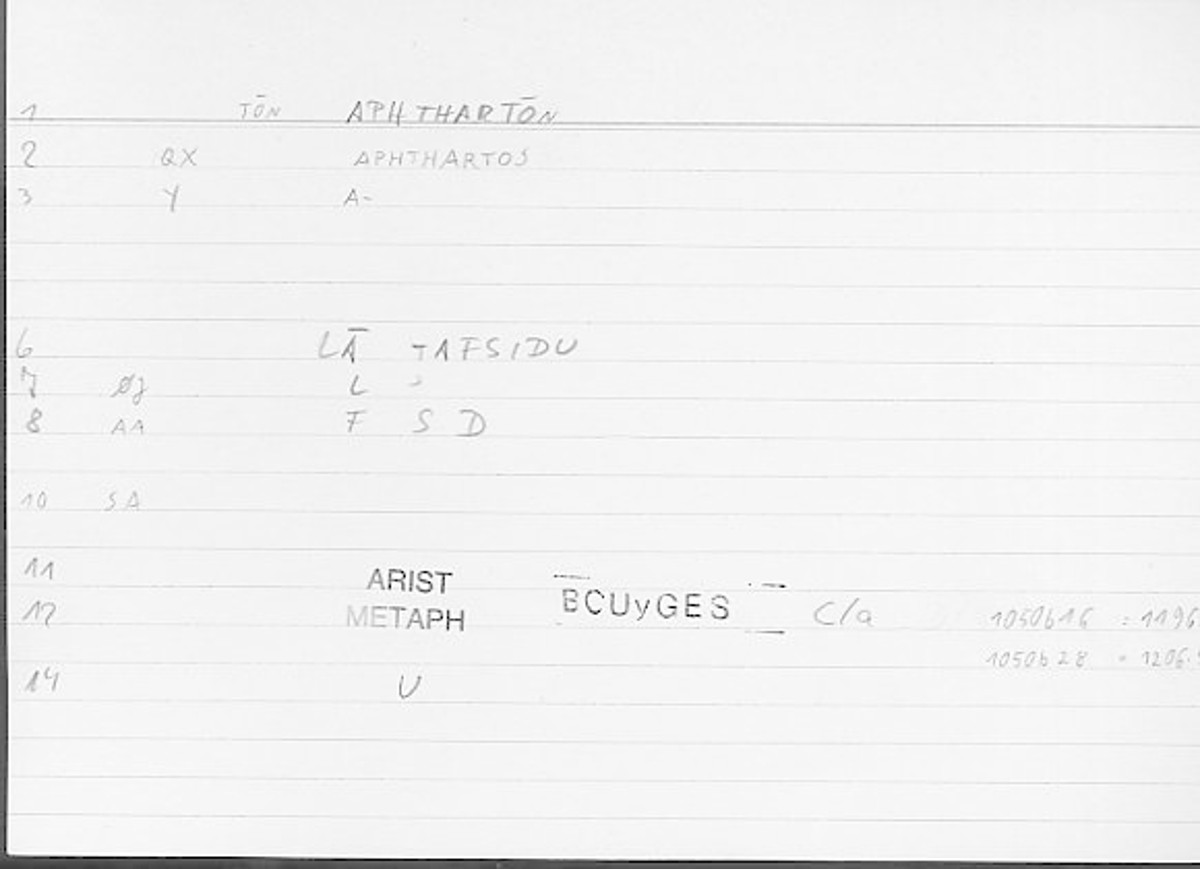 1 TŌN APHTHARTŌN
2 QX APHTHARTOS
3 Y A-
6 LĀ TAFSIDU
7 Øj L
8 A1 F S D
10 SA
11 ARIST
12 METAPH BOUyGES C/a 1050b16 : 1196
1050b28 = 1206.
14 U